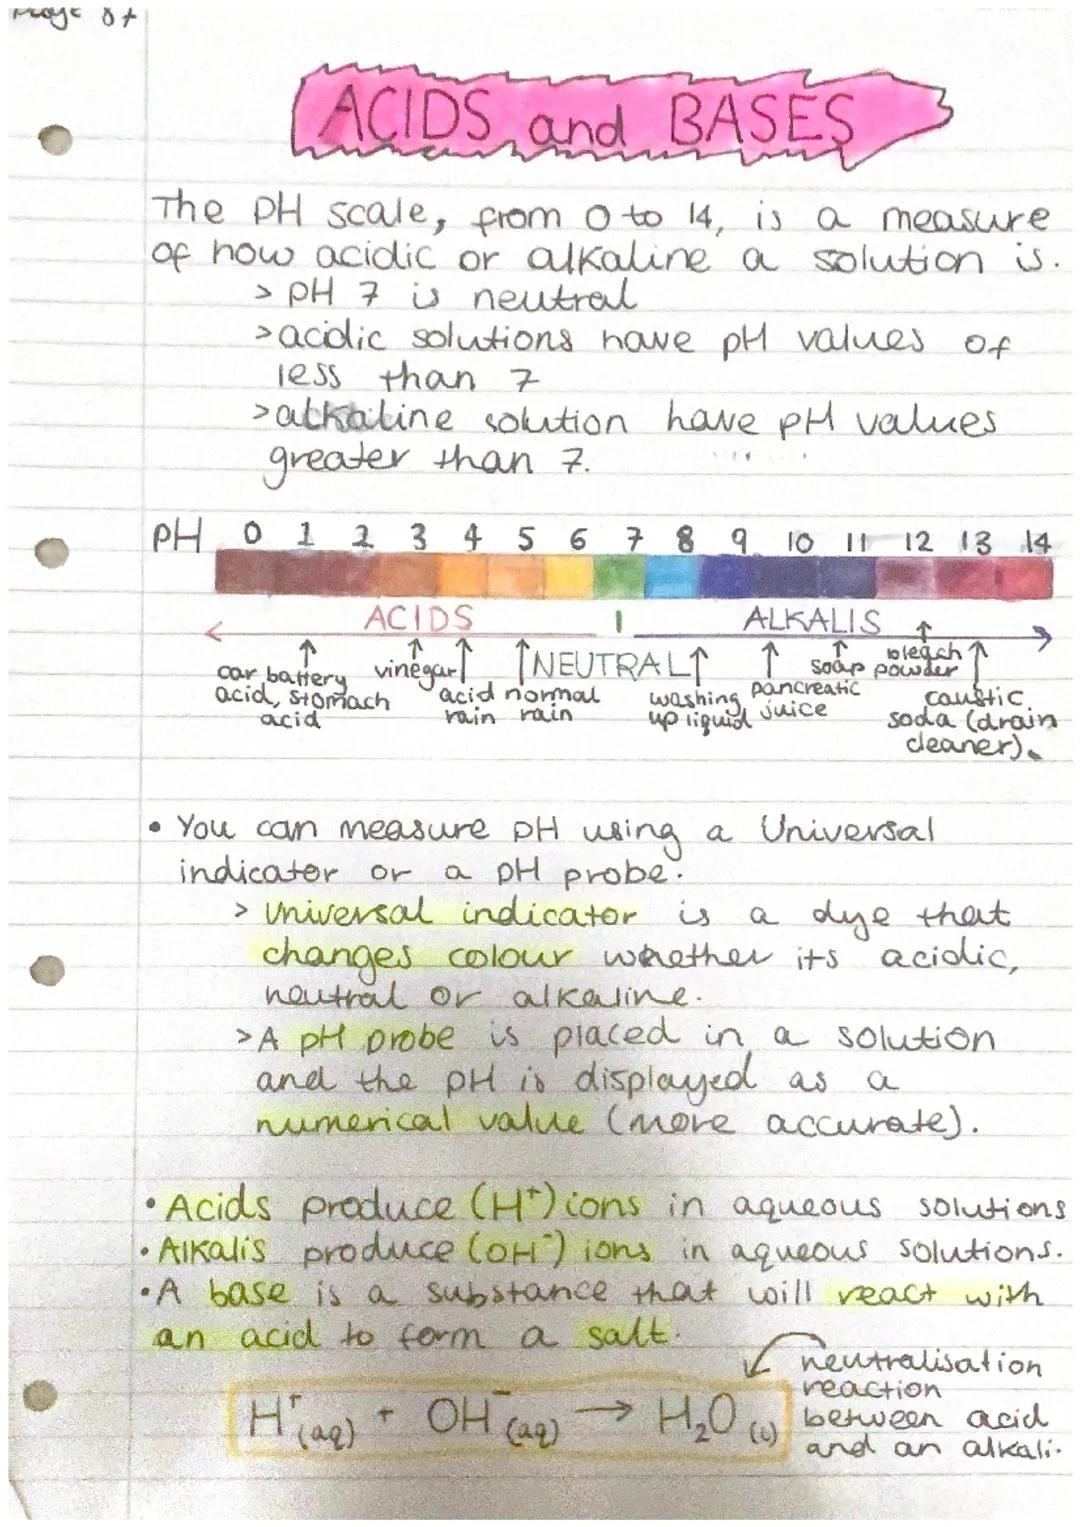 Page 87
ACIDS and BASES
The pH scale, from 0 to 14, is a measure
of how acidic or alkaline a solution is.
> pH 7 is neutral
> acidic solutions have pH values of
less than 7
> alkaline solution have pH values
greater than 7.
pH 0 1 2 3 4 5 6 7 8 9 10 11 12 13 14
ACIDS ALKALIS
NEUTRAL
car battery
acid, stomach
acid
vinegar
acid
rain
normal
rain
washing
up liquid
pancreatic
juice
soap
bleach
powder
caustic
soda (drain
cleaner).
• You can measure pH using a Universal
indicator or a pH probe.
> Universal indicator is a dye that
changes colour whether its acidic,
neutral or alkaline.
> A pH probe is placed in a solution
and the pH is displayed as a
numerical value (more accurate).
• Acids produce (H⁺) ions in aqueous solutions
• Alkalis produce (OH⁻) ions in aqueous solutions.
• A base is a substance that will react with
an acid to form a salt.
H⁺(aq) + OH⁻(aq) → H₂O(l)
neutralisation
reaction
between acid
and an alkali.